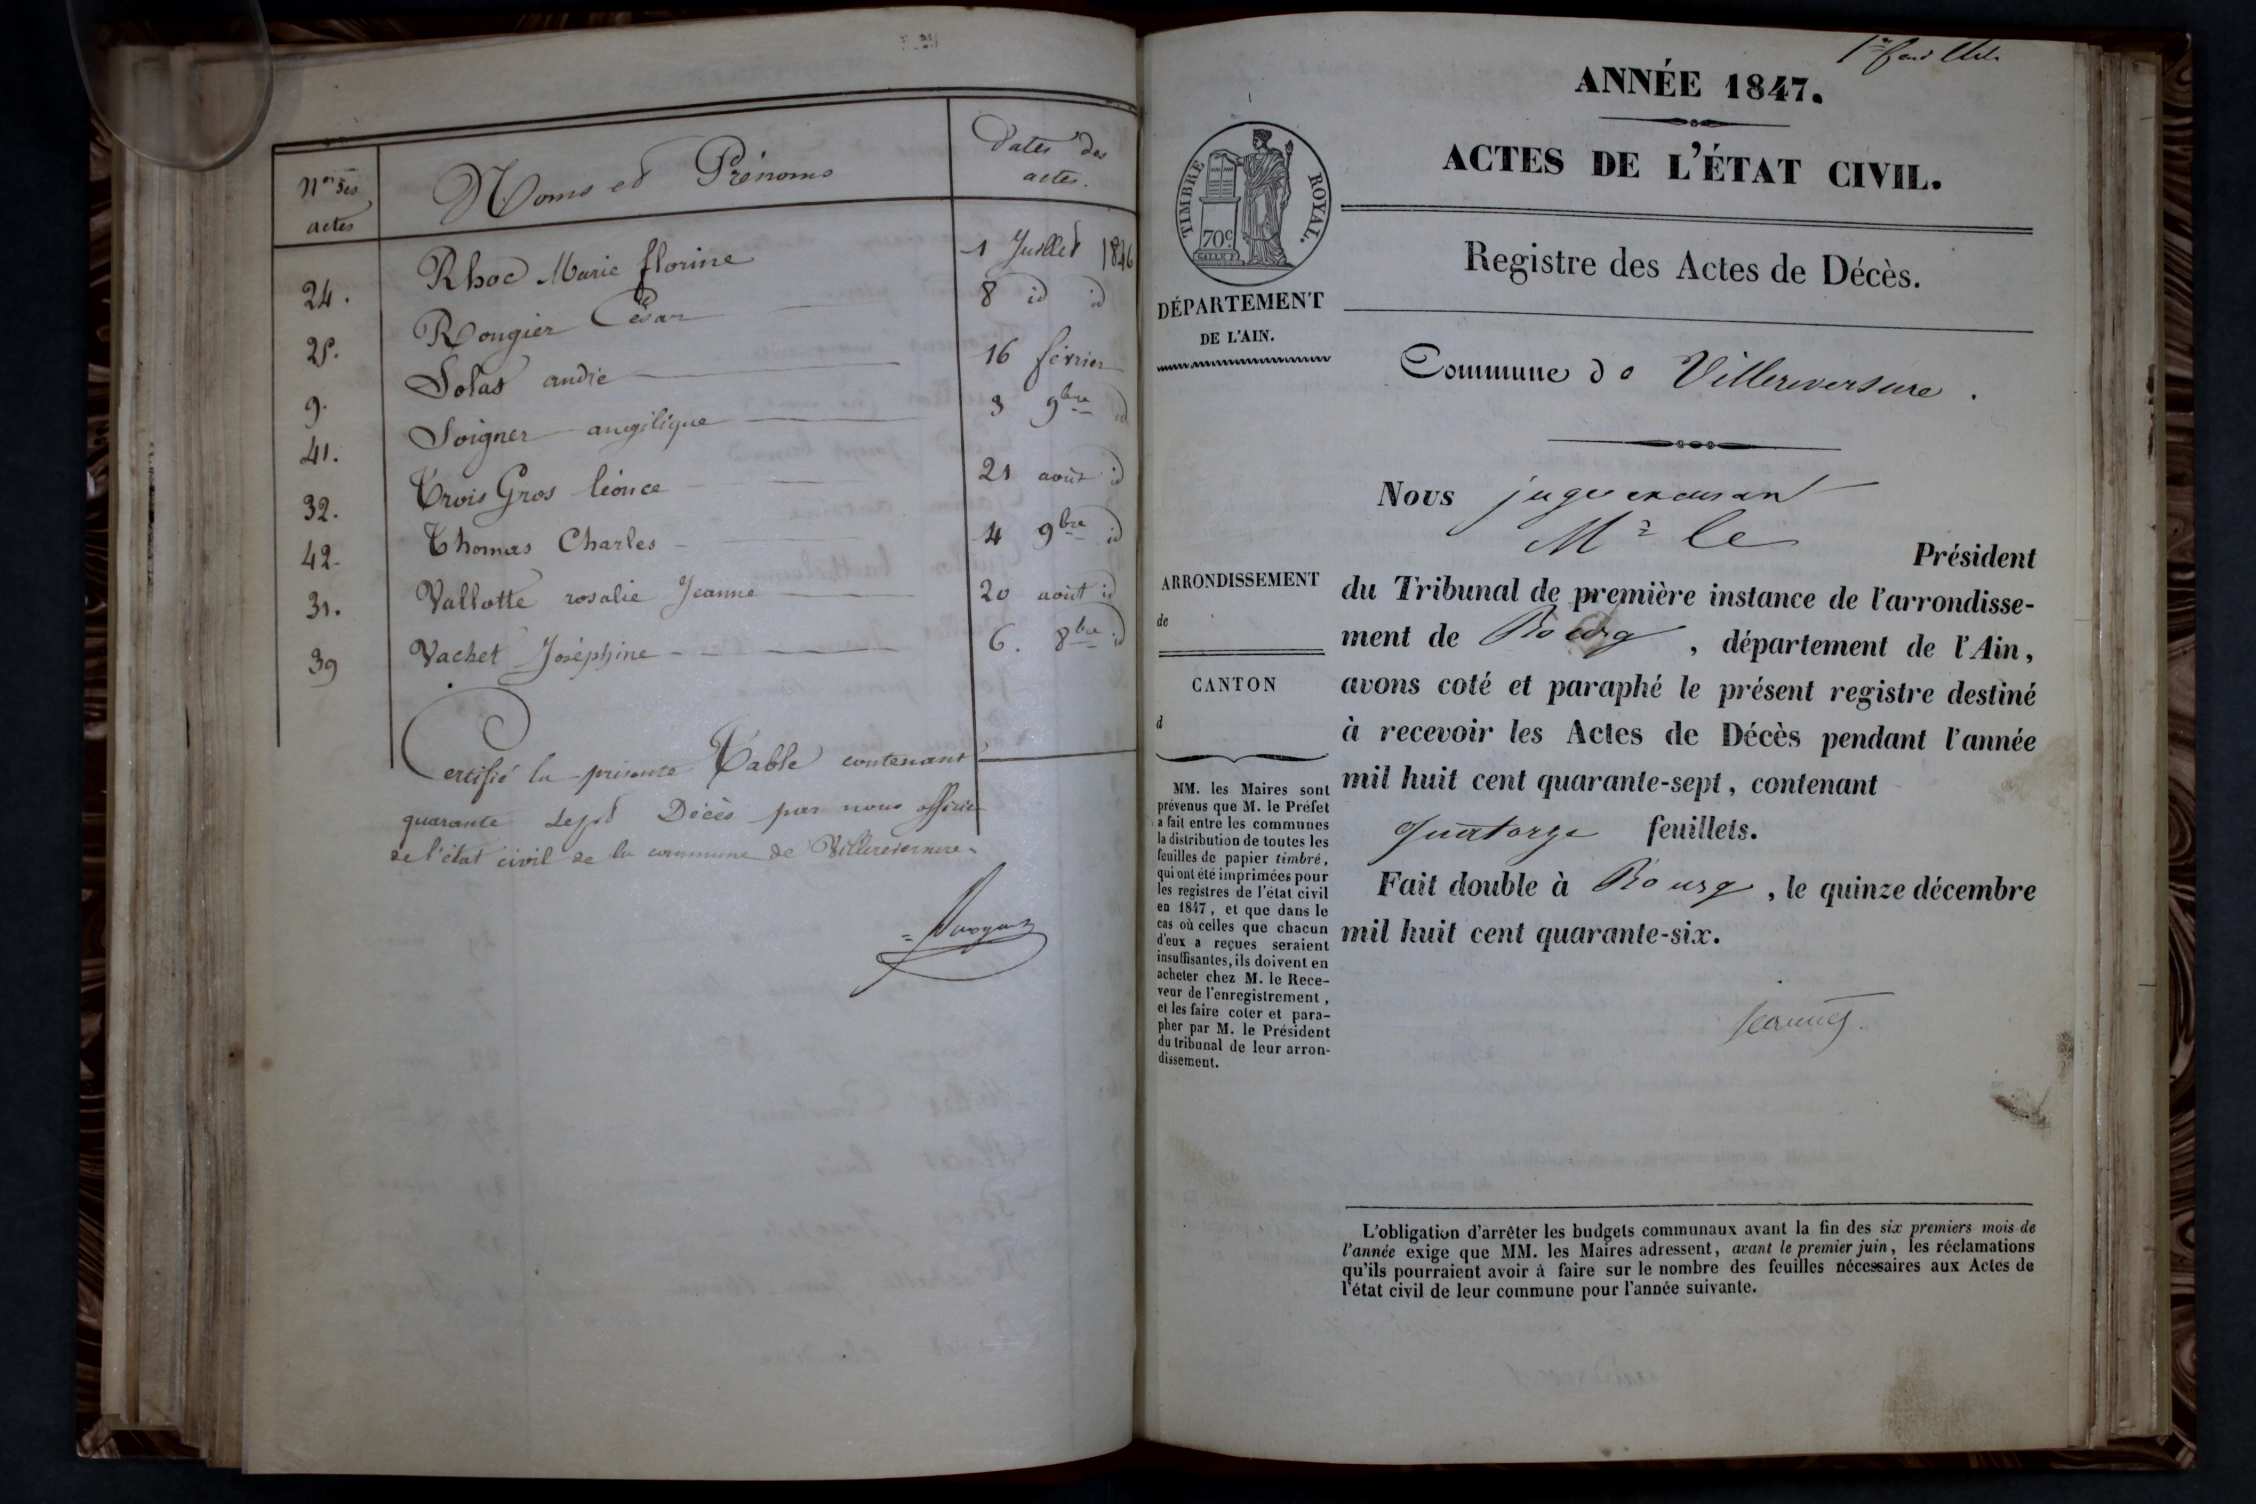 Nos des
actes
Noms et Prénoms
Dates des
actes.
24. Rhod Marie florine 1 Juillet 1846
25. Rougier César 8 id id
9. Solas andré 16 février
41. Soigner angélique 3 9bre id
32. Trois Gros léonce 21 août id
42. Thomas Charles 4 9bre id
31. Vallotte rosalie Jeanne 20 août id
39 Vachet Joséphine 6. 8bre id
Certifié la présente Table contenant
quarante Sept Décès par nous officier
de l'état civil de la commune de Villereversure.
1er feuillet
ANNÉE 1847.
ACTES DE L'ÉTAT CIVIL.
TIMBRE ROYAL.
70c
DÉPARTEMENT
DE L'AIN.
Registre des Actes de Décès.
Commune de Villereversure.
ARRONDISSEMENT
de
CANTON
d
MM. les Maires sont
prévenus que M. le Préfet
a fait entre les communes
la distribution de toutes les
feuilles de papier timbré,
qui ont été imprimées pour
les registres de l'état civil
en 1847, et que dans le
cas où celles que chacun
d'eux a reçues seraient
insuffisantes, ils doivent en
acheter chez M. le Rece-
veur de l'enregistrement,
et les faire coter et para-
pher par M. le Président
du tribunal de leur arron-
dissement.
Nous juge
Mr le Président
du Tribunal de première instance de l'arrondisse-
ment de Bourg, département de l'Ain,
avons coté et paraphé le présent registre destiné
à recevoir les Actes de Décès pendant l'année
mil huit cent quarante-sept, contenant
quatorze feuillets.
Fait double à Bourg, le quinze décembre
mil huit cent quarante-six.
L'obligation d'arrêter les budgets communaux avant la fin des six premiers mois de
l'année exige que MM. les Maires adressent, avant le premier juin, les réclamations
qu'ils pourraient avoir à faire sur le nombre des feuilles nécessaires aux Actes de
l'état civil de leur commune pour l'année suivante.